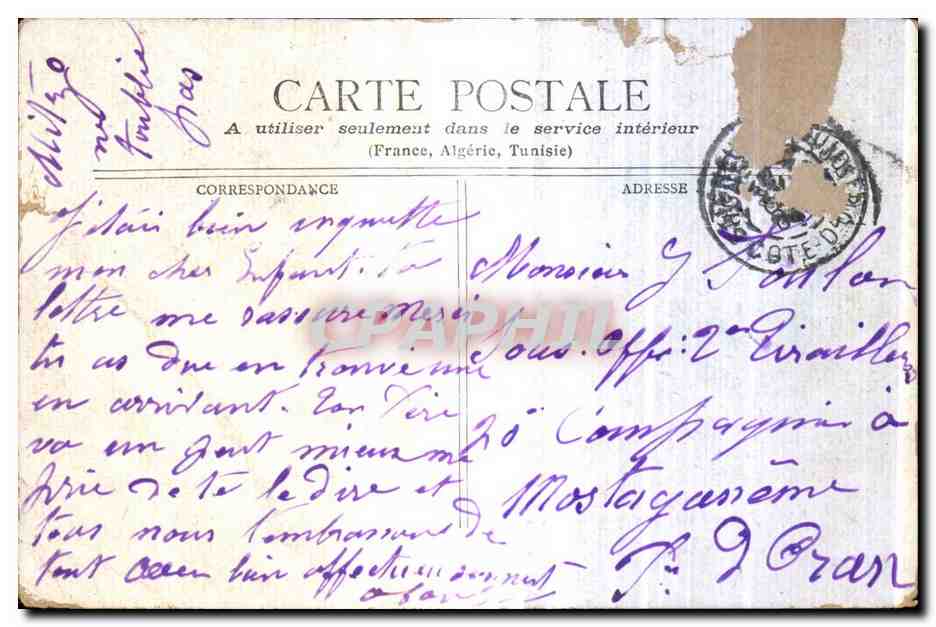 CARTE POSTALE
A utiliser seulement dans le service intérieur
(France, Algérie, Tunisie)
CORRESPONDANCE
ADRESSE
toublie
pas
J'étais bien inquiette
mon cher Enfant. ta
lettre me rassure Merci
tu as due en trouvé une
en arrivant. Ton Père
va un peut mieux me
prie de te le dire et
tous nous t'embrassons de
tout bien affectueusement
Monsieur J Toulon
Sous. offi: 2e Tirailleur
20e Compagnie à
Mostaganême
Pce D Oran
COTE-D'OR
CPAPHIL